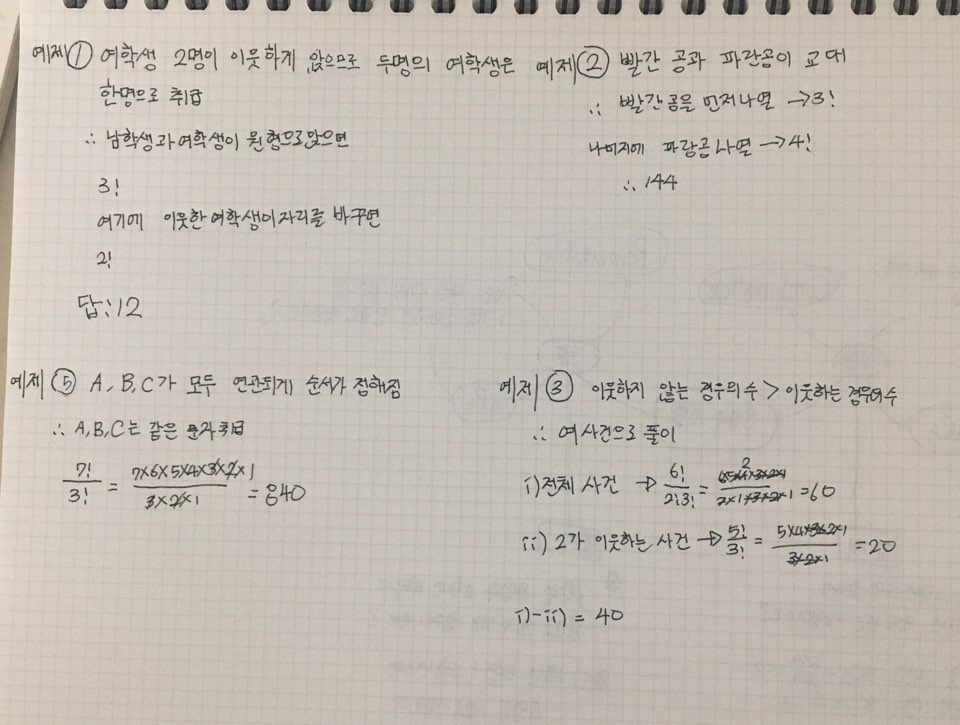 예제① 여학생 2명이 이웃하게 앉으므로 두명의 여학생은
한명으로 취급
∴ 남학생과 여학생이 원형으로 앉으면
3!
여기에 이웃한 여학생이 자리를 바꾸면
2!
답:12
예제② 빨간 공과 파란공이 교대
∴ 빨간공을 먼저나열 →3!
나머지에 파랑공 나열 →4!
∴ 144
예제 ⑤ A, B, C가 모두 연관되게 순서가 정해짐
∴ A,B,C는 같은 문자취급
7!/3! = 7×6×5×4×3×2×1/3×2×1 = 840
예제 ③ 이웃하지 않는 경우의수 > 이웃하는 경우의수
∴ 여사건으로 풀이
i)전체 사건 → 6!/2!3! = 6×5×4×3×2×1/2×1×3×2×1 = 60
2
ii) 2가 이웃하는 사건 → 5!/3! = 5×4×3×2×1/3×2×1 = 20
i)-ii) = 40